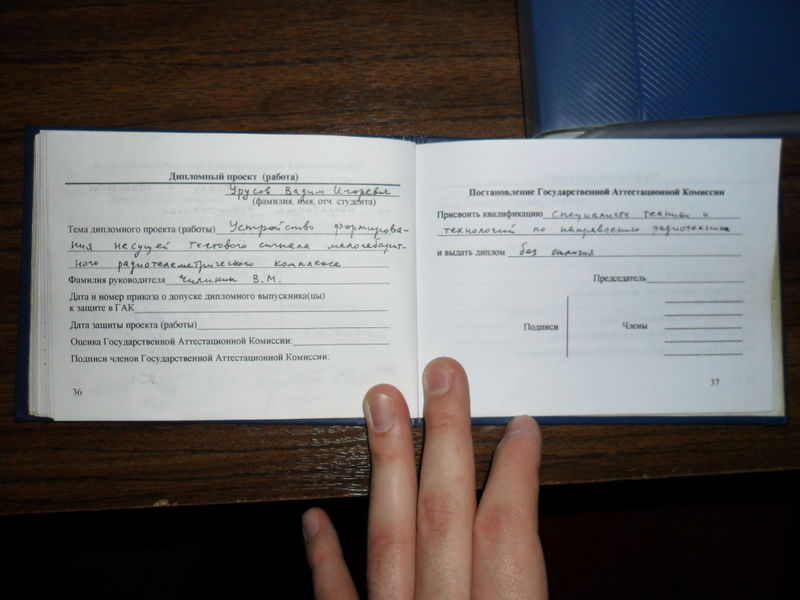 Дипломный проект (работа)
Урусов Вадим Игоревич
(фамилия, имя, отч. студента)
Тема дипломного проекта (работы) Устройство формирова-
ния несущей тестового сигнала малогабарит-
ного радиотелеметрического комплекса
Фамилия руководителя Чиликин В.М.
Дата и номер приказа о допуске дипломного выпускника(цы)
к защите в ГАК
Дата защиты проекта (работы)
Оценка Государственной Аттестационной Комиссии:
Подписи членов Государственной Аттестационной Комиссии:
36
Постановление Государственной Аттестационной Комиссии
Присвоить квалификацию специалиста техники и
технологий по направлению радиотехника
и выдать диплом без отличия
Председатель
Подписи Члены
37